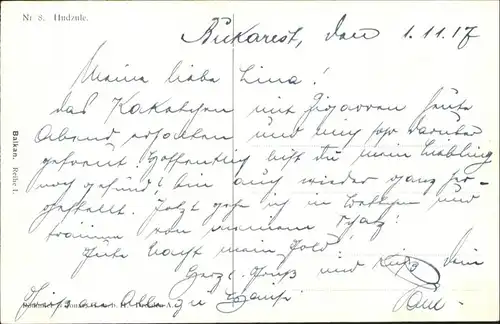 Nr 8. Hudzule.
Bukarest, den 1.11.17
Meine liebe Lina!
das Paketchen mit Zigarren heute
Abend erhalten und mich sehr darüber
gefreut. Hoffentlich bist du mein Liebling
noch gesund! bin auch wieder ganz her-
gestellt. Jetzt geh ich in Bettchen und
träume von meinem Schatz!
Gute Nacht mein Gold!
Herzl. Gruß und Kuß Dein
Grüße an Alle zu Hause
Balkan. Reihe I.